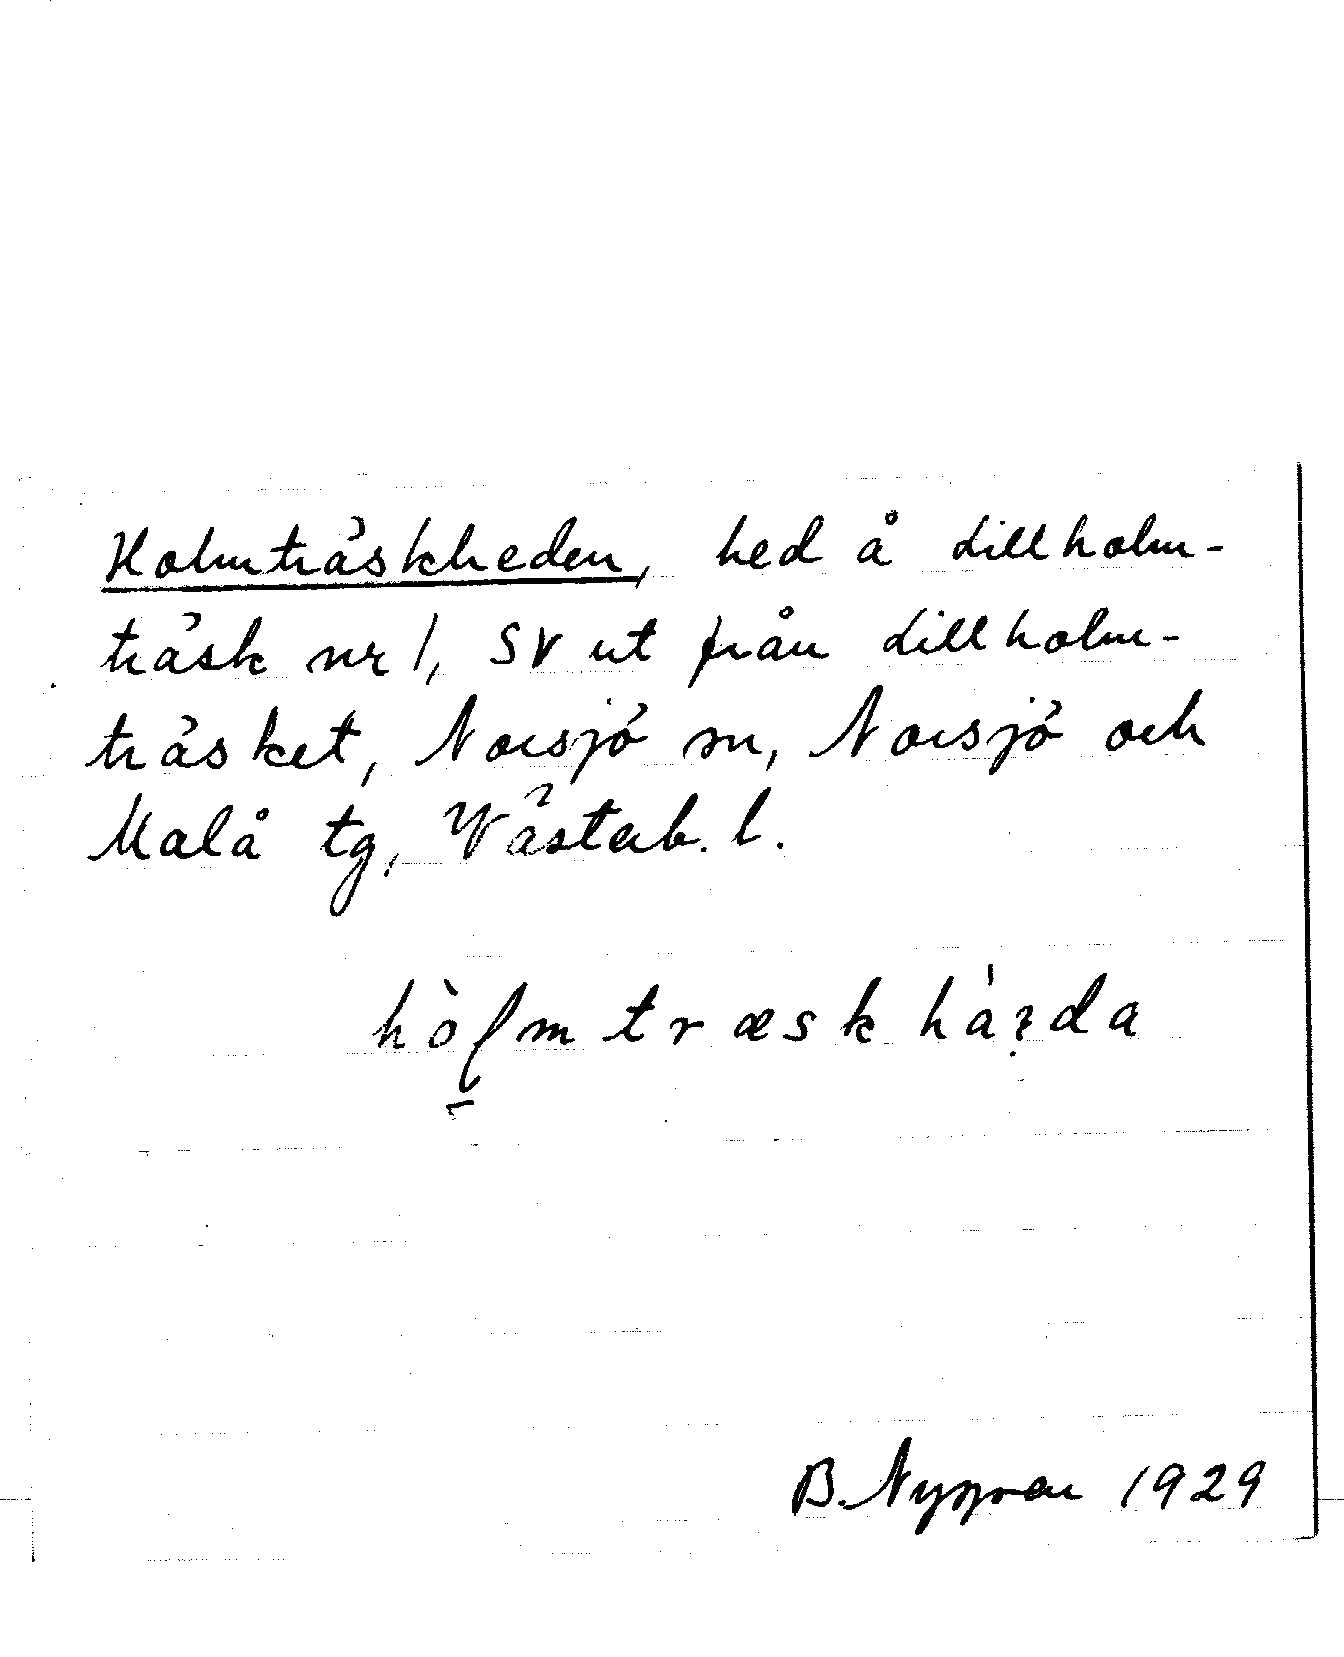 Holmträskheden, hed å Lillholm-
träsk nr 1, SV ut från Lillholm-
träsket, Norsjö sn, Norsjö och
Malå tg, Västerb. l.
B. Nygren 1929